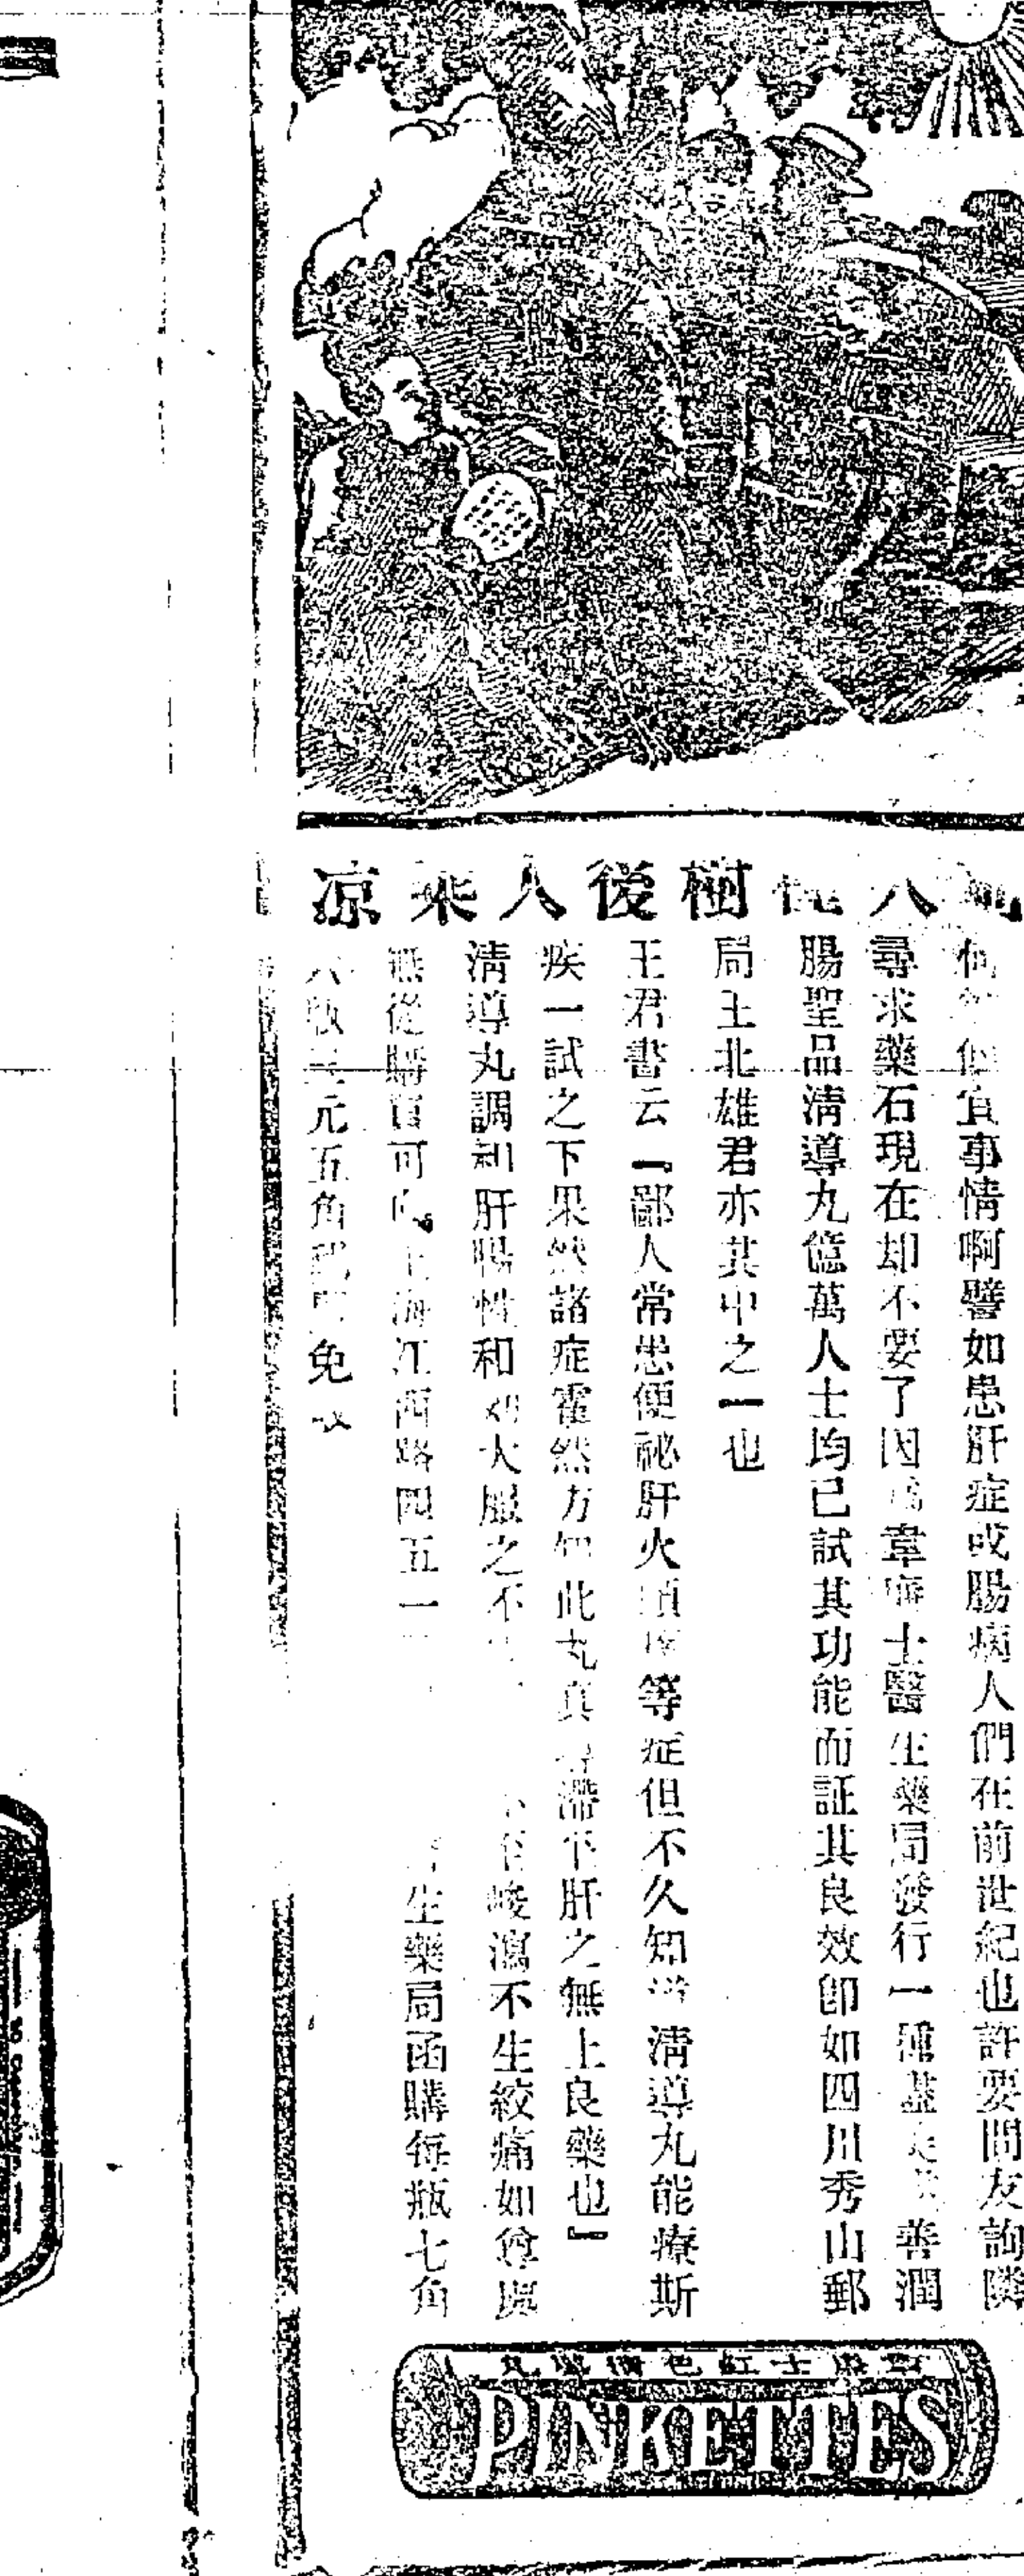 前人種樹後人乘涼
何等便宜事情啊譬如患肝症或腸病人們在前世紀也許要問友詢隣
尋求藥石現在却不要了因爲韋廉士醫生藥局發行一種盡善潤
腸聖品淸導丸億萬人士均已試其功能而証其良效卽如四川秀山郵
局王北雄君亦其中之一也
王君書云『鄙人常患便祕肝火頭等症但不久知淸導丸能療斯
疾一試之下果然諸症霍然方知此丸真導滯平肝之無上良藥也』
淸導丸調和肝腸性和大服之不峻瀉不生絞痛如尊處
無從購買可向上海江西路四五一生藥局函購每瓶七角
六瓶三元五角郵費免收
PINKETTES